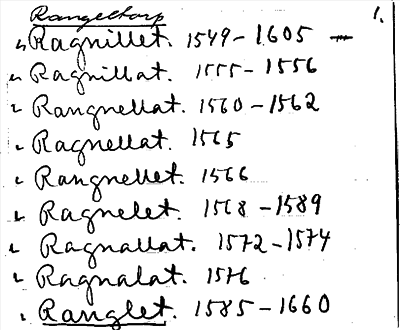 Rangeltorp 1.
" Ragnillet. 1549-1605 —
" Ragnillat. 1555-1556
" Rangnellat. 1560-1562
" Ragnellat. 1565
" Rangnellet. 1566
" Ragnelet. 1568-1589
" Ragnallat. 1572-1574
" Ragnalat. 1576
" Ranglet. 1585-1660